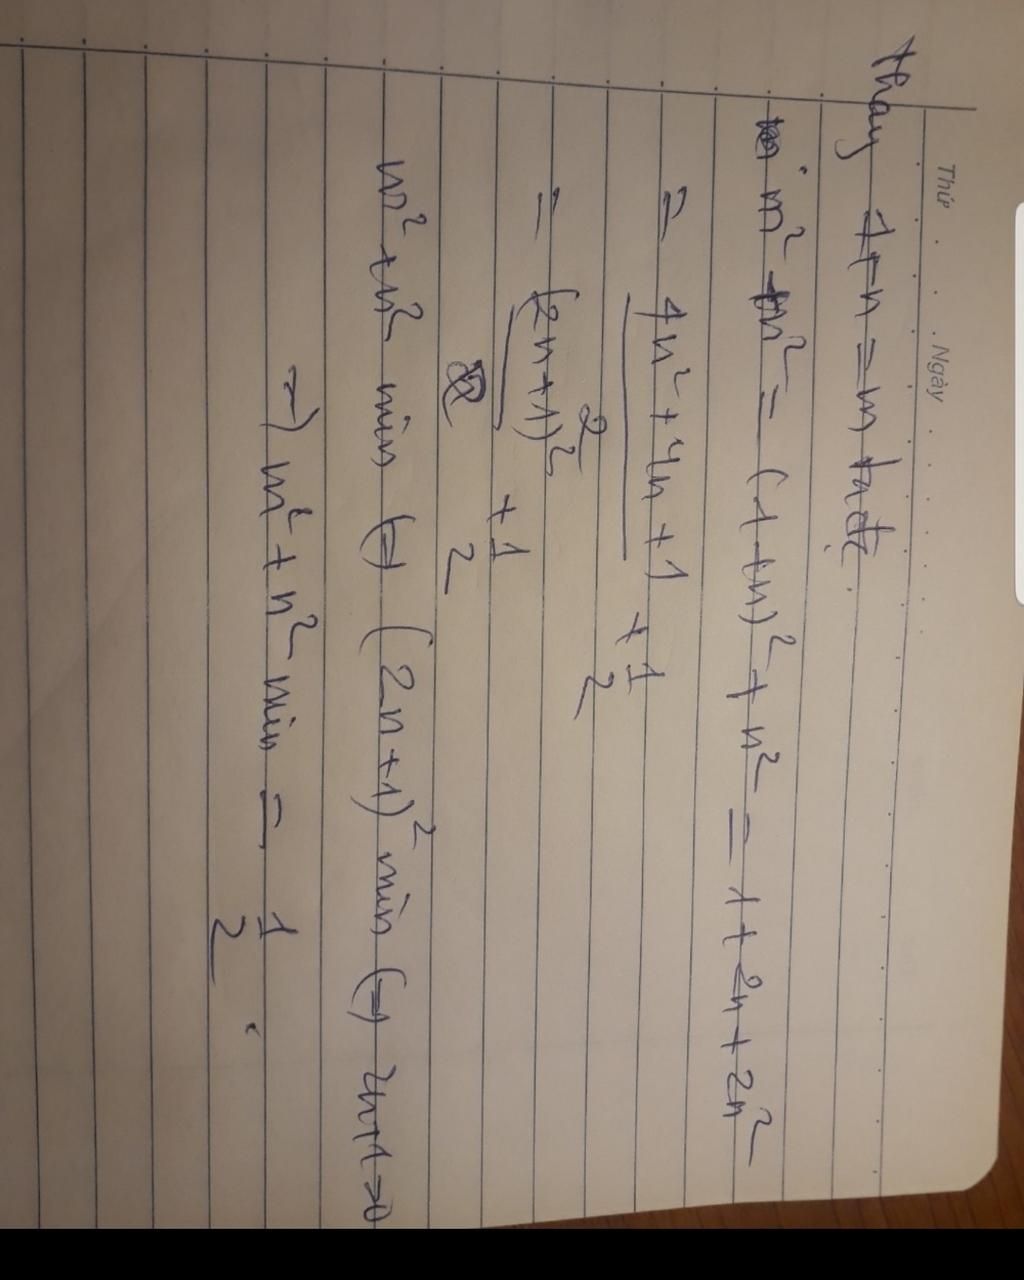 Thứ . . . . . Ngày . . . . . .
Thay 1+n = m ta đc
m² + n² = (1+n)² + n² = 1 + 2n + 2n²
= 4n² + 4n + 1 + 1
2 2
= (2n+1)² + 1
2 2
m² + n² min (=) (2n+1)² min (=) 2n+1=0
=) m² + n² min = 1
2